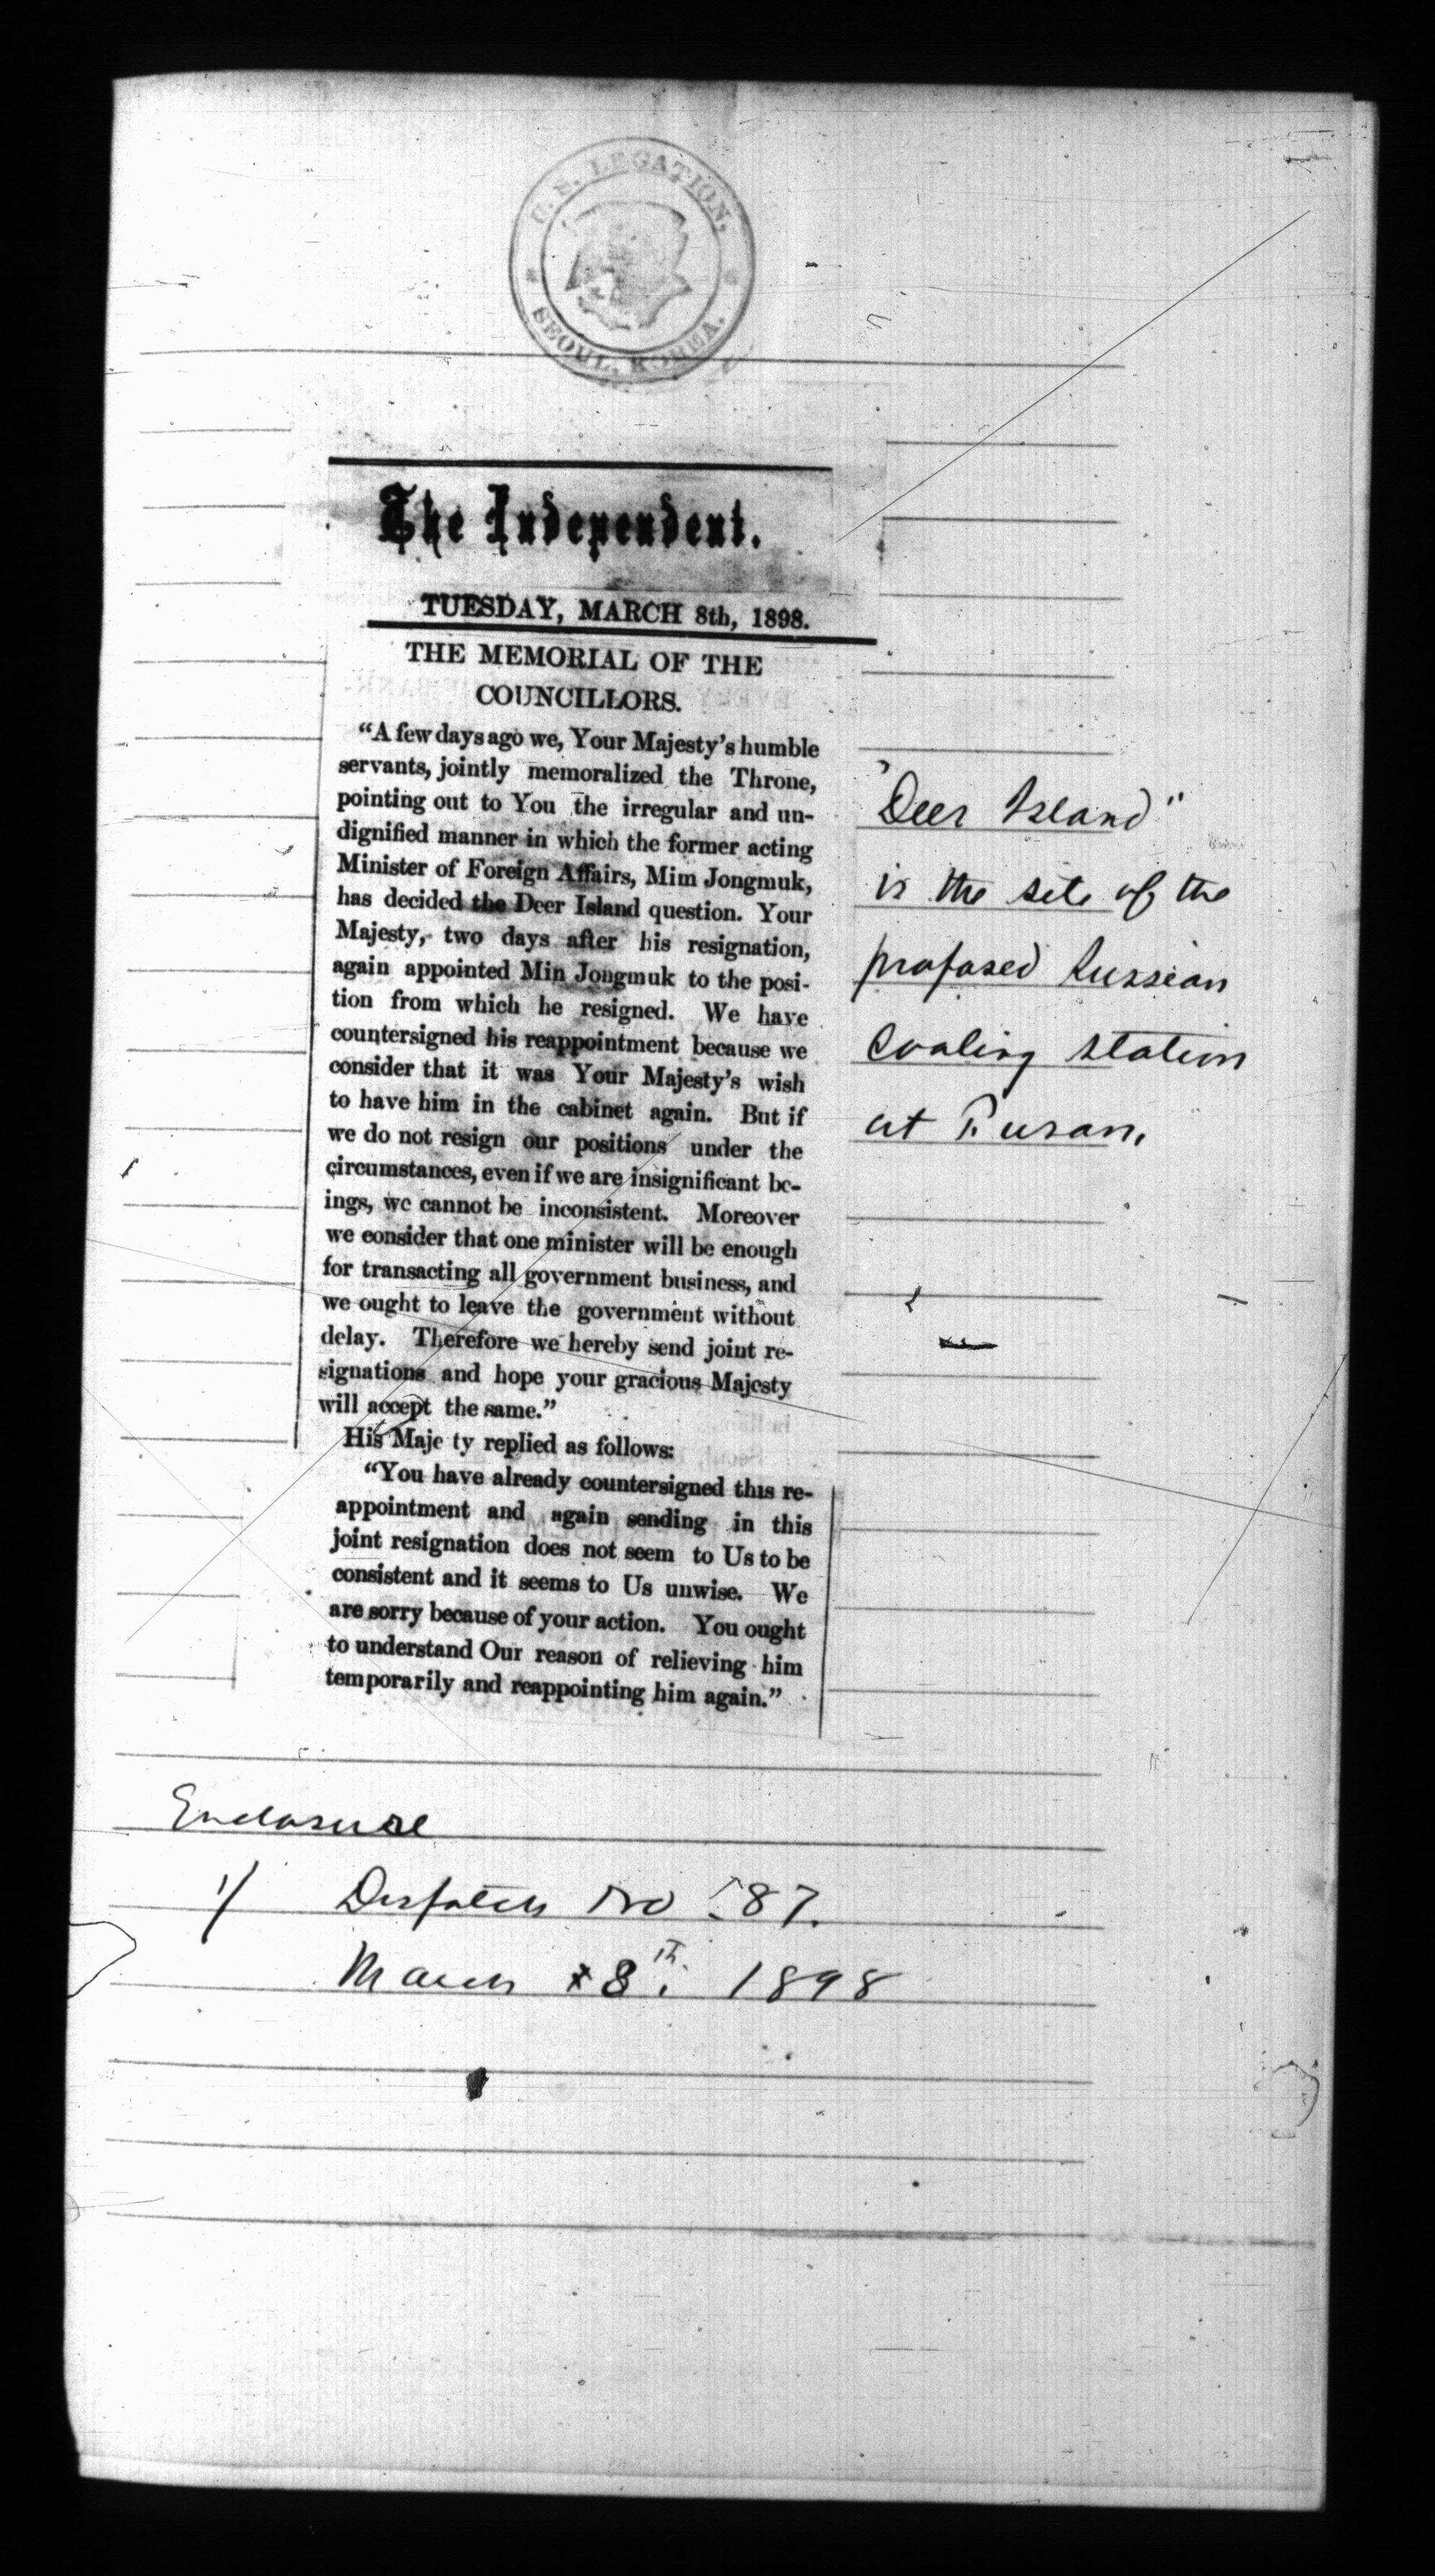 U. S. LEGATION,
SEOUL, KOREA.
The Independent.
TUESDAY, MARCH 8th, 1898.
THE MEMORIAL OF THE
COUNCILLORS.
"A few days ago we, Your Majesty's humble
servants, jointly memoralized the Throne,
pointing out to You the irregular and un-
dignified manner in which the former acting
Minister of Foreign Affairs, Mim Jongmuk,
has decided the Deer Island question. Your
Majesty, two days after his resignation,
again appointed Min Jongmuk to the posi-
tion from which he resigned. We have
countersigned his reappointment because we
consider that it was Your Majesty's wish
to have him in the cabinet again. But if
we do not resign our positions under the
circumstances, even if we are insignificant be-
ings, we cannot be inconsistent. Moreover
we consider that one minister will be enough
for transacting all government business, and
we ought to leave the government without
delay. Therefore we hereby send joint re-
signations and hope your gracious Majesty
will accept the same."
His Maje ty replied as follows:
"You have already countersigned this re-
appointment and again sending in this
joint resignation does not seem to Us to be
consistent and it seems to Us unwise. We
are sorry because of your action. You ought
to understand Our reason of relieving him
temporarily and reappointing him again."
"Deer Island"
is the site of the
proposed Russian
Coaling station
at Fusan.
Enclosure
1/ Dispatch No 87.
March 8th. 1898